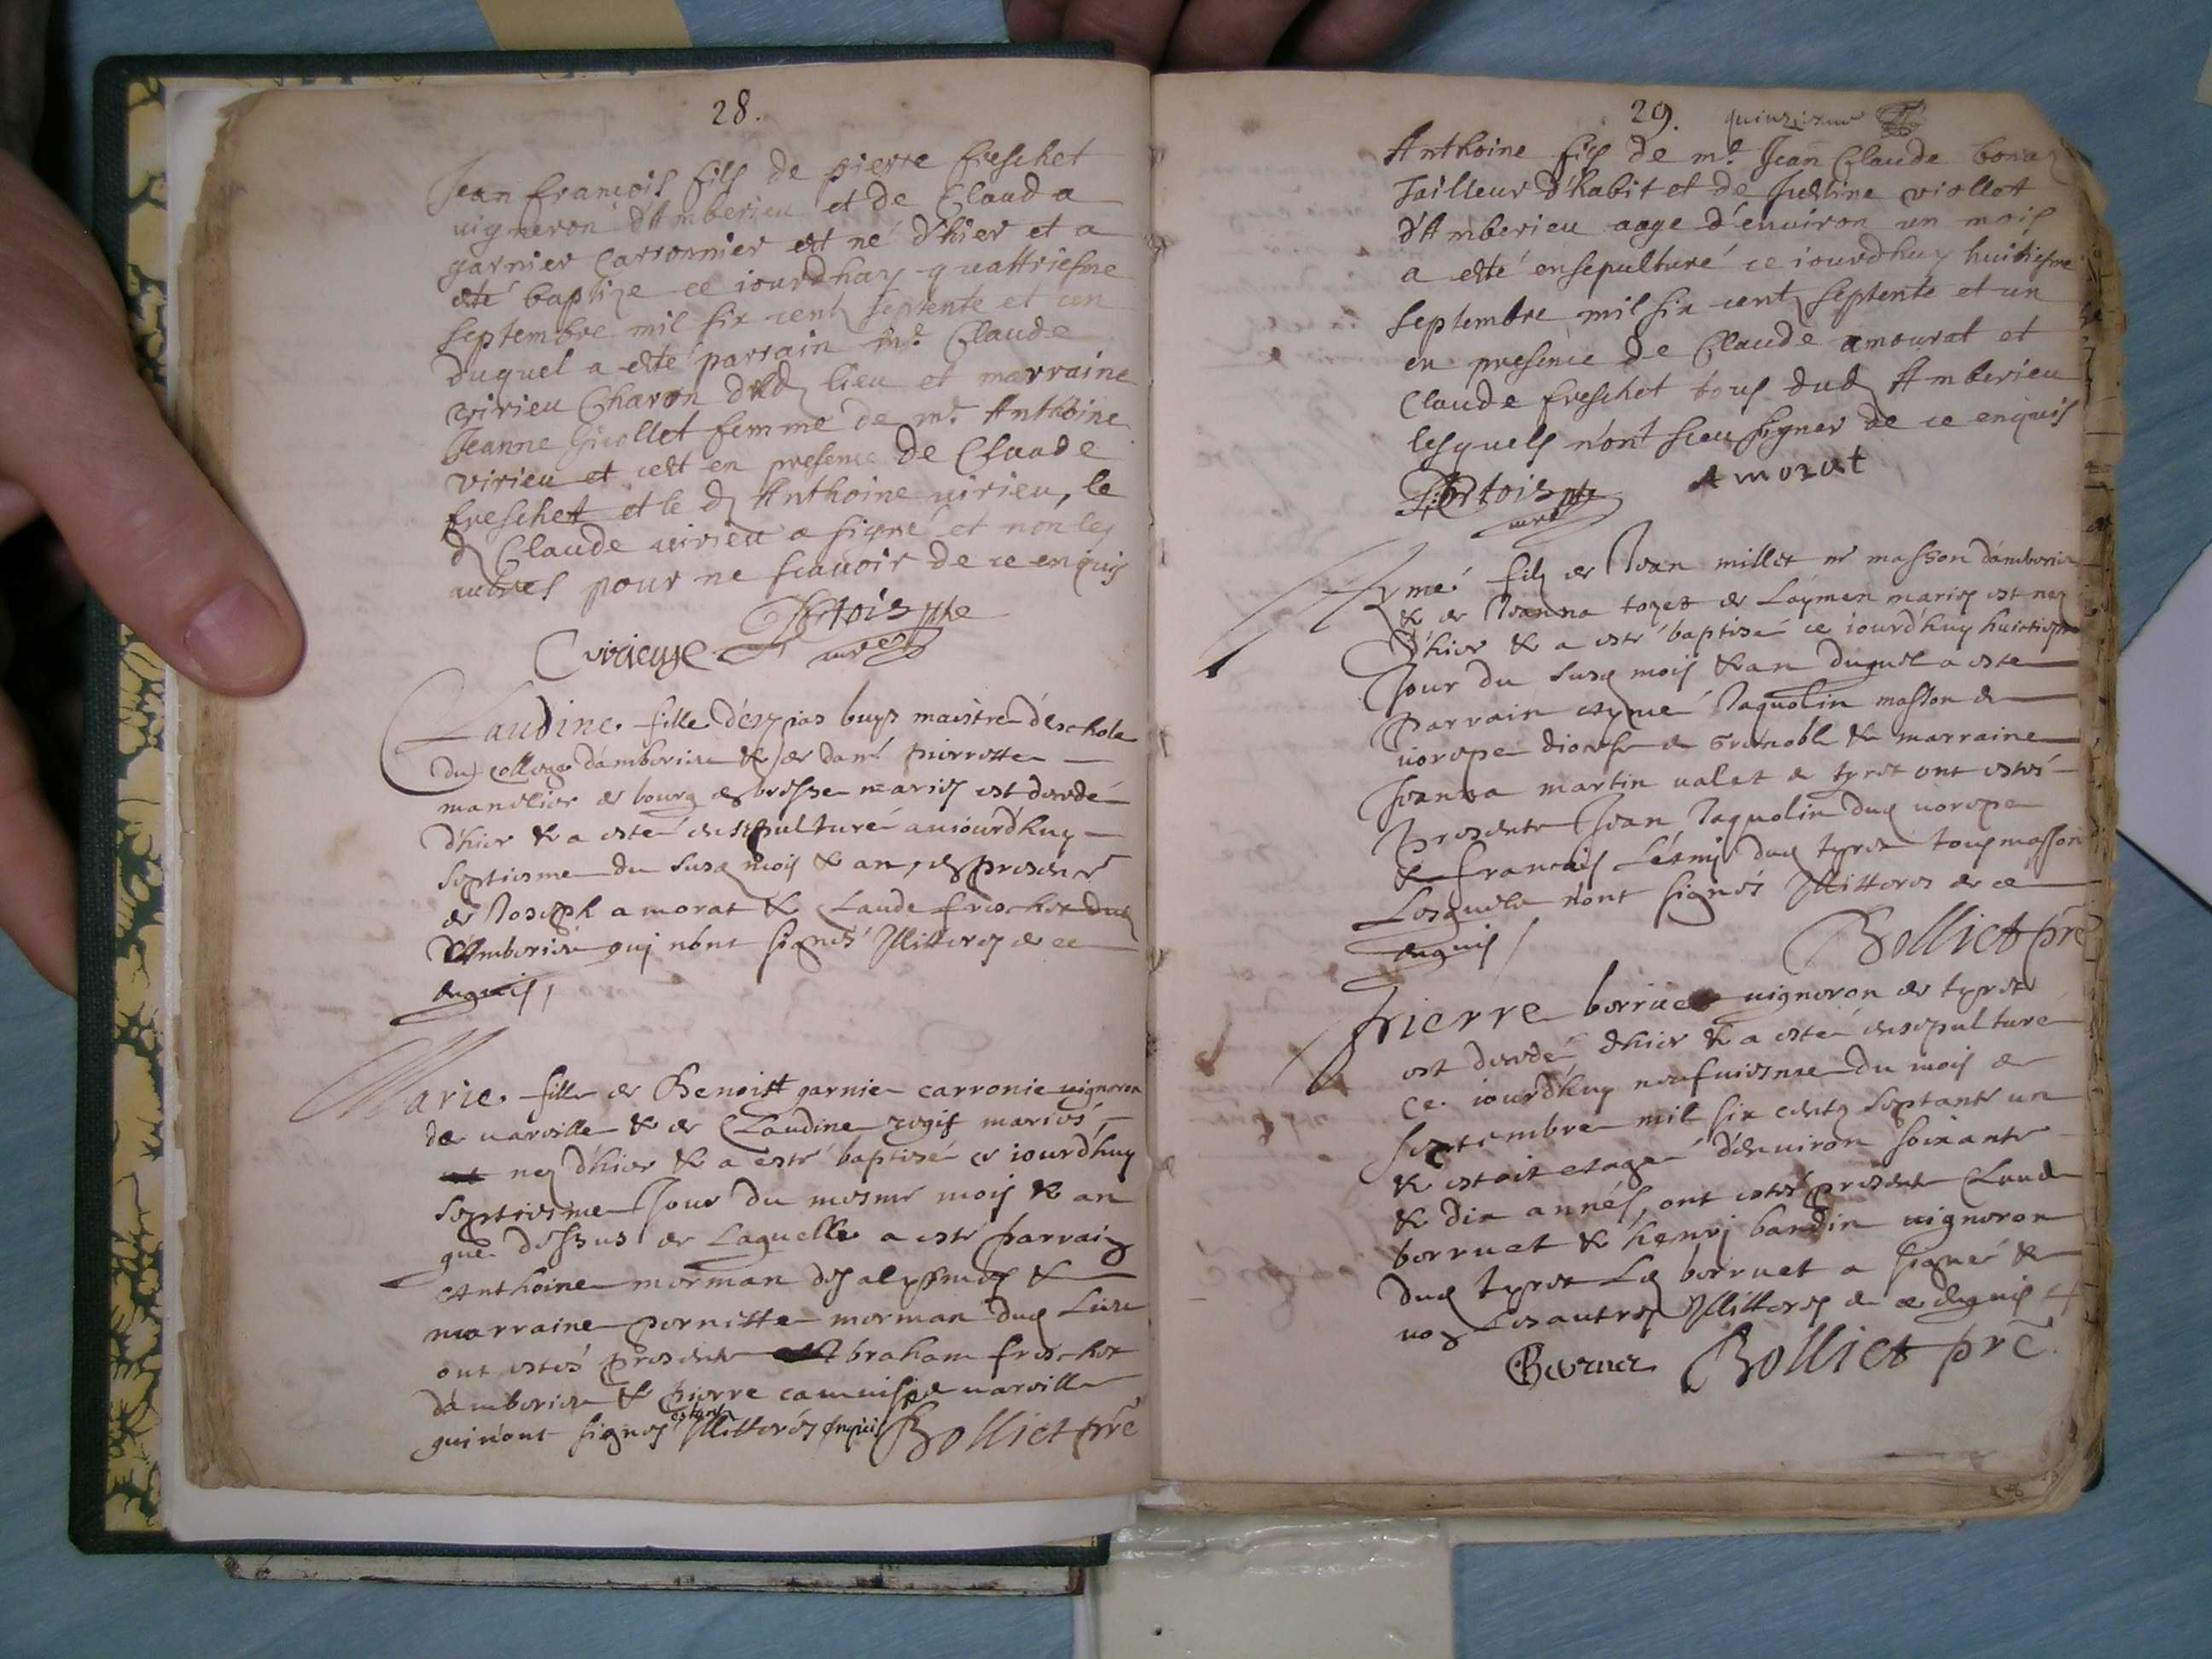 28.
Jean francois fils de pierre freschet
uigneron d'Amberieu et de Clauda
garnier Carronnier est né d'hier et a
esté baptize ce iourdhuy quattriesme
septembre mil six cent septente et un
duquel a esté parrain mr. Claude
virieu Charon dud lieu et marraine
Jeanne femme de mr. Anthoine
virieu et cest en presence de Claude
freschet et le d Anthoine uirieu, le
d Claude uirieu a signé et non les
autres pour ne scauoir de ce enquis
Cvirieux
Claudine fille buys maistre deschole
du college damberieu & de dam pierrette
de bourg en bresse mariés est decedé
d'hier & a esté ensepulturé auiourdhuy
septiesme du susd mois & an, en presence
de Joseph amorat & Claude freschet dud
d'Amberieu qui nont signés Illitterez de ce
enquis /
Marie fille de Benoist garnier carronie uigneron
de uareille & de Claudine mariés
nez d'hier & a esté baptisé ce iourd'huy
septiesme Jour du mesme mois & an
que dessus de Laquelle a esté parrain
Anthoine morman des &
marraine pernette morman dud Lieu
ont estés presents Abraham freschet
damberieu & pierre de uareille
qui n'ont signés estants Illitterés enquis Bolliet pre
29. quinziesme
Anthoine fils de mr. Jean Claude
Tailleur d'habit et de Justine viollet
d'Amberieu aage d'enuiron un mois
a esté ensepulturé ce iourdhuy huitiesme
septembre mil six cent septente et un
en presence de Claude amourat et
Claude freschet tous dud Amberieu
lesquels n'ont sceu signer de ce enquis
Amorat
Aymé fils de Jean millet mr masson damberieu
& de Jeanna de mariés est nez
d'hier & a esté baptisé ce iourd'huy huictiesme
Jour du susd mois & an duquel a esté
parrain aymé Jaquelin masson de
uorepe diocese de Grenoble & marraine
Jeanna martin ualet de tyret ont estés
presents Jean Jaquelin dud uorepe
& francois dud tyret tous massons
Lesquels n'ont signés Illitteres de ce
enquis / Bolliet pre
Pierre borruet uigneron de tyret
est decedé dhier & a esté ensepulturé
ce iourdhuy neufuiesme du mois de
septembre mil six cents septante un
& estoit aagé d'enuiron soixante
& dix annés, ont estés presents Claude
borruet & henrj bardin uigneron
dud tyret Led borruet a signé &
non Les autres Illitterez de ce enquis
Bolliet pre